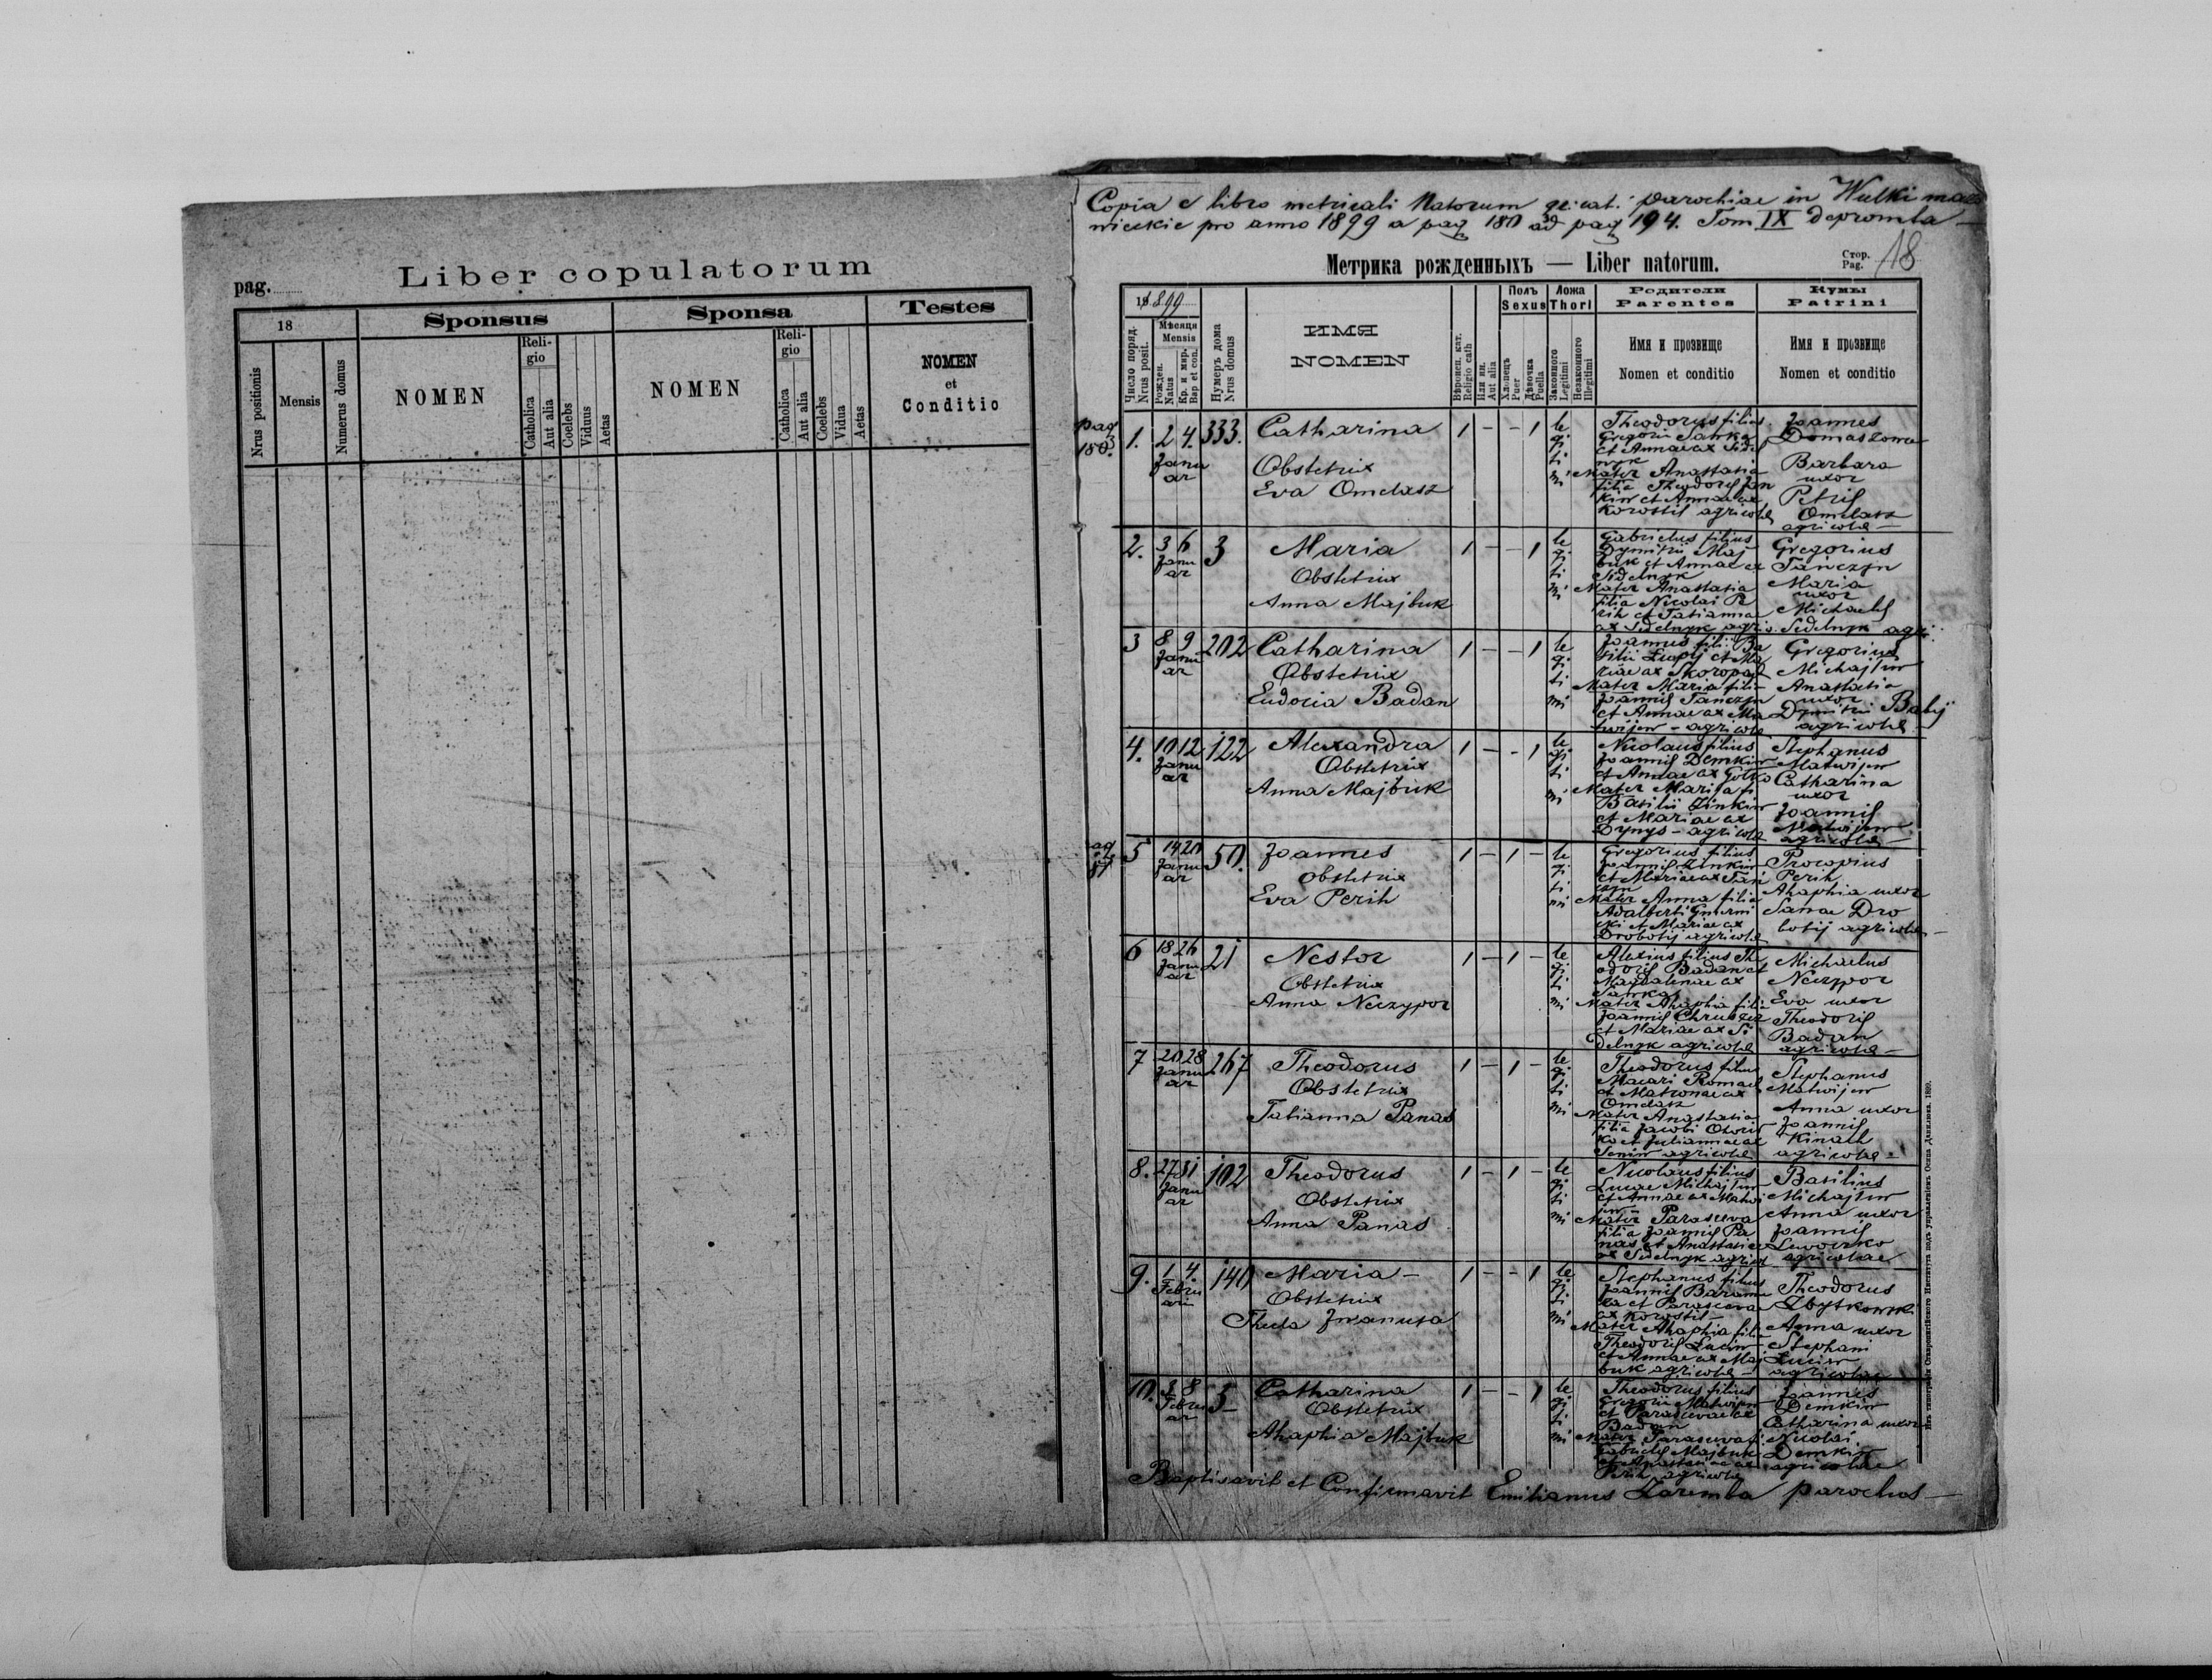 pag.
Liber copulatorum
18
Sponsus
Sponsa
Testes
Nrus positionis
Mensis
Numerus domus
NOMEN
Religio
Catholica
Aut alia
Coelebs
Viduus
Aetas
NOMEN
Religio
Catholica
Aut alia
Coelebs
Vidua
Aetas
NOMEN
et
Conditio
Copia e libro metricali Natorum gr: cat: parochiae in Wulki maz
wieckie pro anno 1899 a pag 180 ad pag 194. Tom IX depromta
Метрика рожденныхъ — Liber natorum.
Стор.
Pag. 18
1899
Число поряд.
Nrus posit.
Мѣсяця
Mensis
Рожден.
Natus
Кр. и мир.
Bap et con.
Нумеръ дома
Nrus domus
ИМЯ
NOMEN
Вѣроисп. кат.
Religio cath
Или ин.
Aut alia
Полъ
Sexus
Хлопецъ
Puer
Дѣвочка
Puella
Ложа
Thori
Законного
Legitimi
Незаконного
Illegitimi
Родители
Parentes
Имя и прозвище
Nomen et conditio
Кумы
Patrini
Имя и прозвище
Nomen et conditio
pag
180
1. 2 4. 333. Catharina 1 - - 1
Janu
ar
Obstetrix
Eva Omelasz
le
gi
ti
mi
Theodorus filius
Gregorii Sawka
et Annae ex Sidel
nyk
Mater Anastasia
filia Theodori
et Annae ex
Korostil agricolae
Joannes
Barbara
uxor
Petri
Omelasz
agricolae
2. 3 6 3 Maria 1 - - 1
Janu
ar
Obstetrix
Anna Majbuk
le
gi
ti
mi
Gabrielus filius
Dymitri Maj
buk et Annae ex
Sidelnyk
Mater Anastasia
filia Nicolai Pe
rih et Tatianna
ex Sedelnyk agric.
Gregorius
Tanczyn
Maria
uxor
Michaelis
Sedelnyk agri
3 8 9 202 Catharina 1 - - 1
Janu
ar
Obstetrix
Eudocia Badan
le
gi
ti
mi
Joannes fili Ba
silii et Ma
riae ex Skoropad
Mater Maria fili
Joannis Tanczyn
et Annae ex Ma
twijew - agricolae
Gregorius
Michajliw
Anastasia
uxor
Dymitrii Babij
agricolae
4. 10 12 122 Alexandra 1 - - 1
Janu
ar
Obstetrix
Anna Majbuk
le
gi
ti
mi
Nicolaus filius
Joannis Demkiw
et Annae ex
Mater Maria fi
Basilii Zinkiw
et Mariae ex
Dynys - agricolae
Stephanus
Matwijew
Catharina
uxor
Joannis
Matwijew
agricolae
5 14 20 50. Joannes 1 - 1 -
Janu
ar
Obstetrix
Eva Perih
le
gi
ti
mi
Gregorius filius
Joannis Zinkiw
et Mariae ex Tan
czyn
Mater Anna filia
Adalberti
et Mariae ex
Drobotij agricolae
Procopius
Perih
Ahaphia uxor
Sanae Dro
botij agricolae
6 18 26 21 Nestor 1 - 1 -
Janu
ar
Obstetrix
Anna Neczypor
le
gi
ti
mi
Alexius filius The
odori Badan et
Magdalenae ex
Sawka
Mater Ahaphia filia
Joannis
et Mariae ex Si
delnyk agricolae
Michaelus
Neczypor
Eva uxor
Theodori
Badan
agricolae
7 20 28 267 Theodorus 1 - 1 -
Janu
ar
Obstetrix
Tatianna Panas
le
gi
ti
mi
Theodorus filius
Macari
et Matronae ex
Omelasz
Mater Anastasia
filia Jacobi
et Juliannae ex
agricolae
Stephanus
Matwijew
Anna uxor
Joannis
Kinach
agricolae
8. 27 31 102 Theodorus 1 - 1 -
Janu
ar
Obstetrix
Anna Panas
le
gi
ti
mi
Nicolaus filius
Lucae Michajliw
et Annae ex Matwi
jew
Mater Parasceva
filia Joannis Pa
nas et Anastasiae
ex Sidelnyk agricol
Basilius
Michajliw
Anna uxor
Joannis
Lewoczko
agricolae
9. 1 4. 140 Maria - 1 - - 1
Febru
arii
Obstetrix
Thecla Iwanusa
le
gi
ti
mi
Stephanus filius
Joannis
et Parasceva
ex Korostil
Mater Ahaphia filia
Theodori Luciw
et Annae ex Maj
buk agricolae
Theodorus
Anna uxor
Stephani
Luciw
agricolae
10. 3 8 5 Catharina 1 - - 1
Febru
ar
Obstetrix
Ahaphia Majbuk
le
gi
ti
mi
Theodorus filius
Gregorii Matwijew
et Parascevae ex
Badan
Mater Parasceva
Gabrielis Majbuk
et Anastasiae ex
Perih agricolae
Joannes
Demkiw
Catharina uxor
Nicolai
Demkiw
agricolae
Baptisavit et Confirmavit Emilianus Zaremba parochus